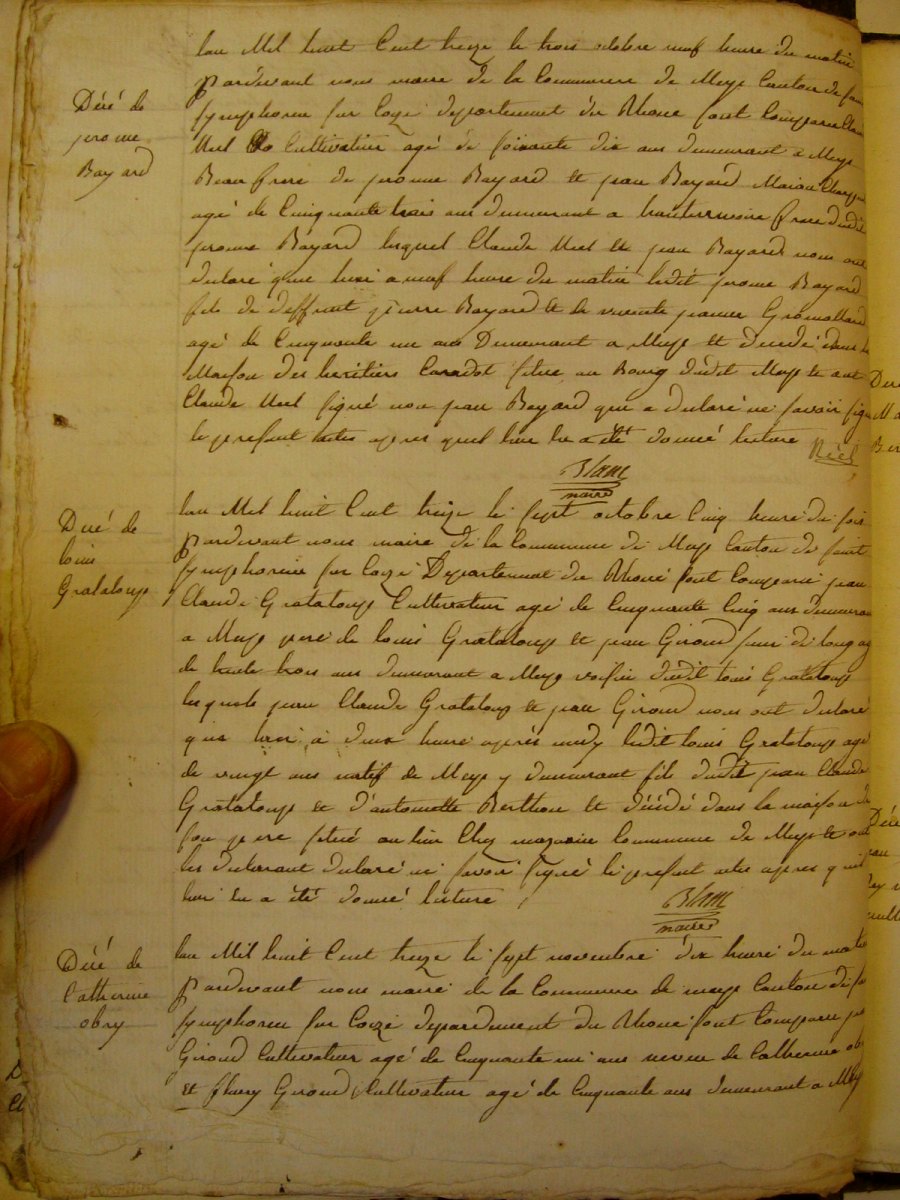 Décé de
jerome
Bayard
lan Mil huit Cent treize le trois octobre neuf heure du matin
pardevant nous maire de la Commune de Meys Canton de
symphorien sur Coize departement du Rhone sont Comparu
Neel Cultivateur agé de soixante dix ans demeurant a Meys
Beau frere de jerome Bayard et jean Bayard
agé de Cinquante trois ans demeurant a hauterivoire frere dudit
jerome Bayard lesquel Claude Neel et jean Bayard nous ont
declaré que hier a neuf heure du matin ledit jerome Bayard
fils de deffunt pierre Bayard et de vivente jeanne Gromollard
agé de Cinquante un ans Demeurant a Meys et decedé dans la
Maison des heritiers situe au Bourg dudit Meys et ont
Claude Neel signé non jean Bayard qui a declaré ne savoir signé
le present actes apres quel leur en a eté donné lecture Néel
Blanc
maire
Décé de
louis
Grataloup
lan Mil huit Cent treize le sept octobre Cinq heure du soir
pardevant nous maire de la Commune de Meys Canton de saint
symphorien sur Coize Departement du Rhone sont Comparu jean
Claude Grataloup Cultivateur agé de Cinquante Cinq ans demeurant
a Meys pere de louis Grataloup et jean Giroud
de trente trois ans demeurant a Meys voisin dudit louis Grataloup
lesquels jean Claude Grataloup et jean Giroud nous ont declaré
que hier à deux heure après midy ledit louis Grataloup agé
de vingt ans natif de Meys y demeurant fils dudit jean Claude
Grataloup et d'antoinette Berthon et décédé dans la maison de
son pere situé au lieu Chez Commune de Meys et ont
les declarant declaré ne savoir signé le present actes apres quil
leur en a été donné lecture
Blanc
maire
Décé de
Catherine
obry
lan Mil huit Cent treize le sept novembre dix heure du matin
pardevant nous maire de la Commune de meys Canton de
symphorien sur Coize departement du Rhone sont Comparu
Giroud Cultivateur agé de Cinquante un ans neveu de Catherine
et fleury Giroud Cultivateur agé de Cinquante ans demeurant a Meys